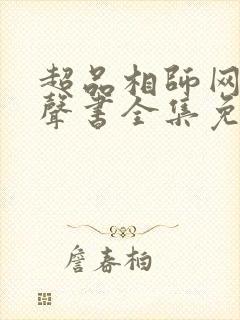 超品相師网
聲书全集免
詹春柏